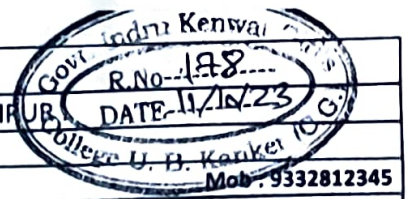 Govt. Indru Kenwar
R.No 178
PUR
DATE 11/10/23
College U. B. Kanker (C.G.)
Mob : 9332812345